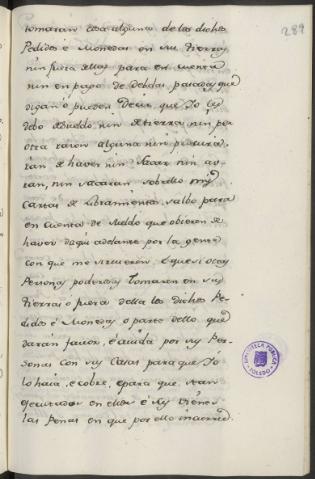 289
tomaran cosa alguna de los dichos
Pedidos é Monedas en sus tierras
nin fuera dellas para en cuenta
nin en pago de debdas pasadas que
digan ó pueden decir que Yo les
debo de sueldo, nin de tierra nin por
otra razon alguna nin procura
ran de haver nin sacar nin av
ran, nin sacaran sobrello mis
Cartas de Libramientos, salbo para
en Cuenta de sueldo que obieren de
haver daqui adelante por la gente
con que me sirvieren. É que si otras
Personas poderosas tomaren en sus
tierras o fuera della los dichos Pe
didos é Monedas o parte dello que
darán favor, é aiuda por sus Per
sonas con sus Casas para que Yo
lo haia, é cobre, é para que sean
executadas en ellos é sus vienes
las Penas en que por ello incurren
BIBLIOTECA PÚBLICA
TOLEDO